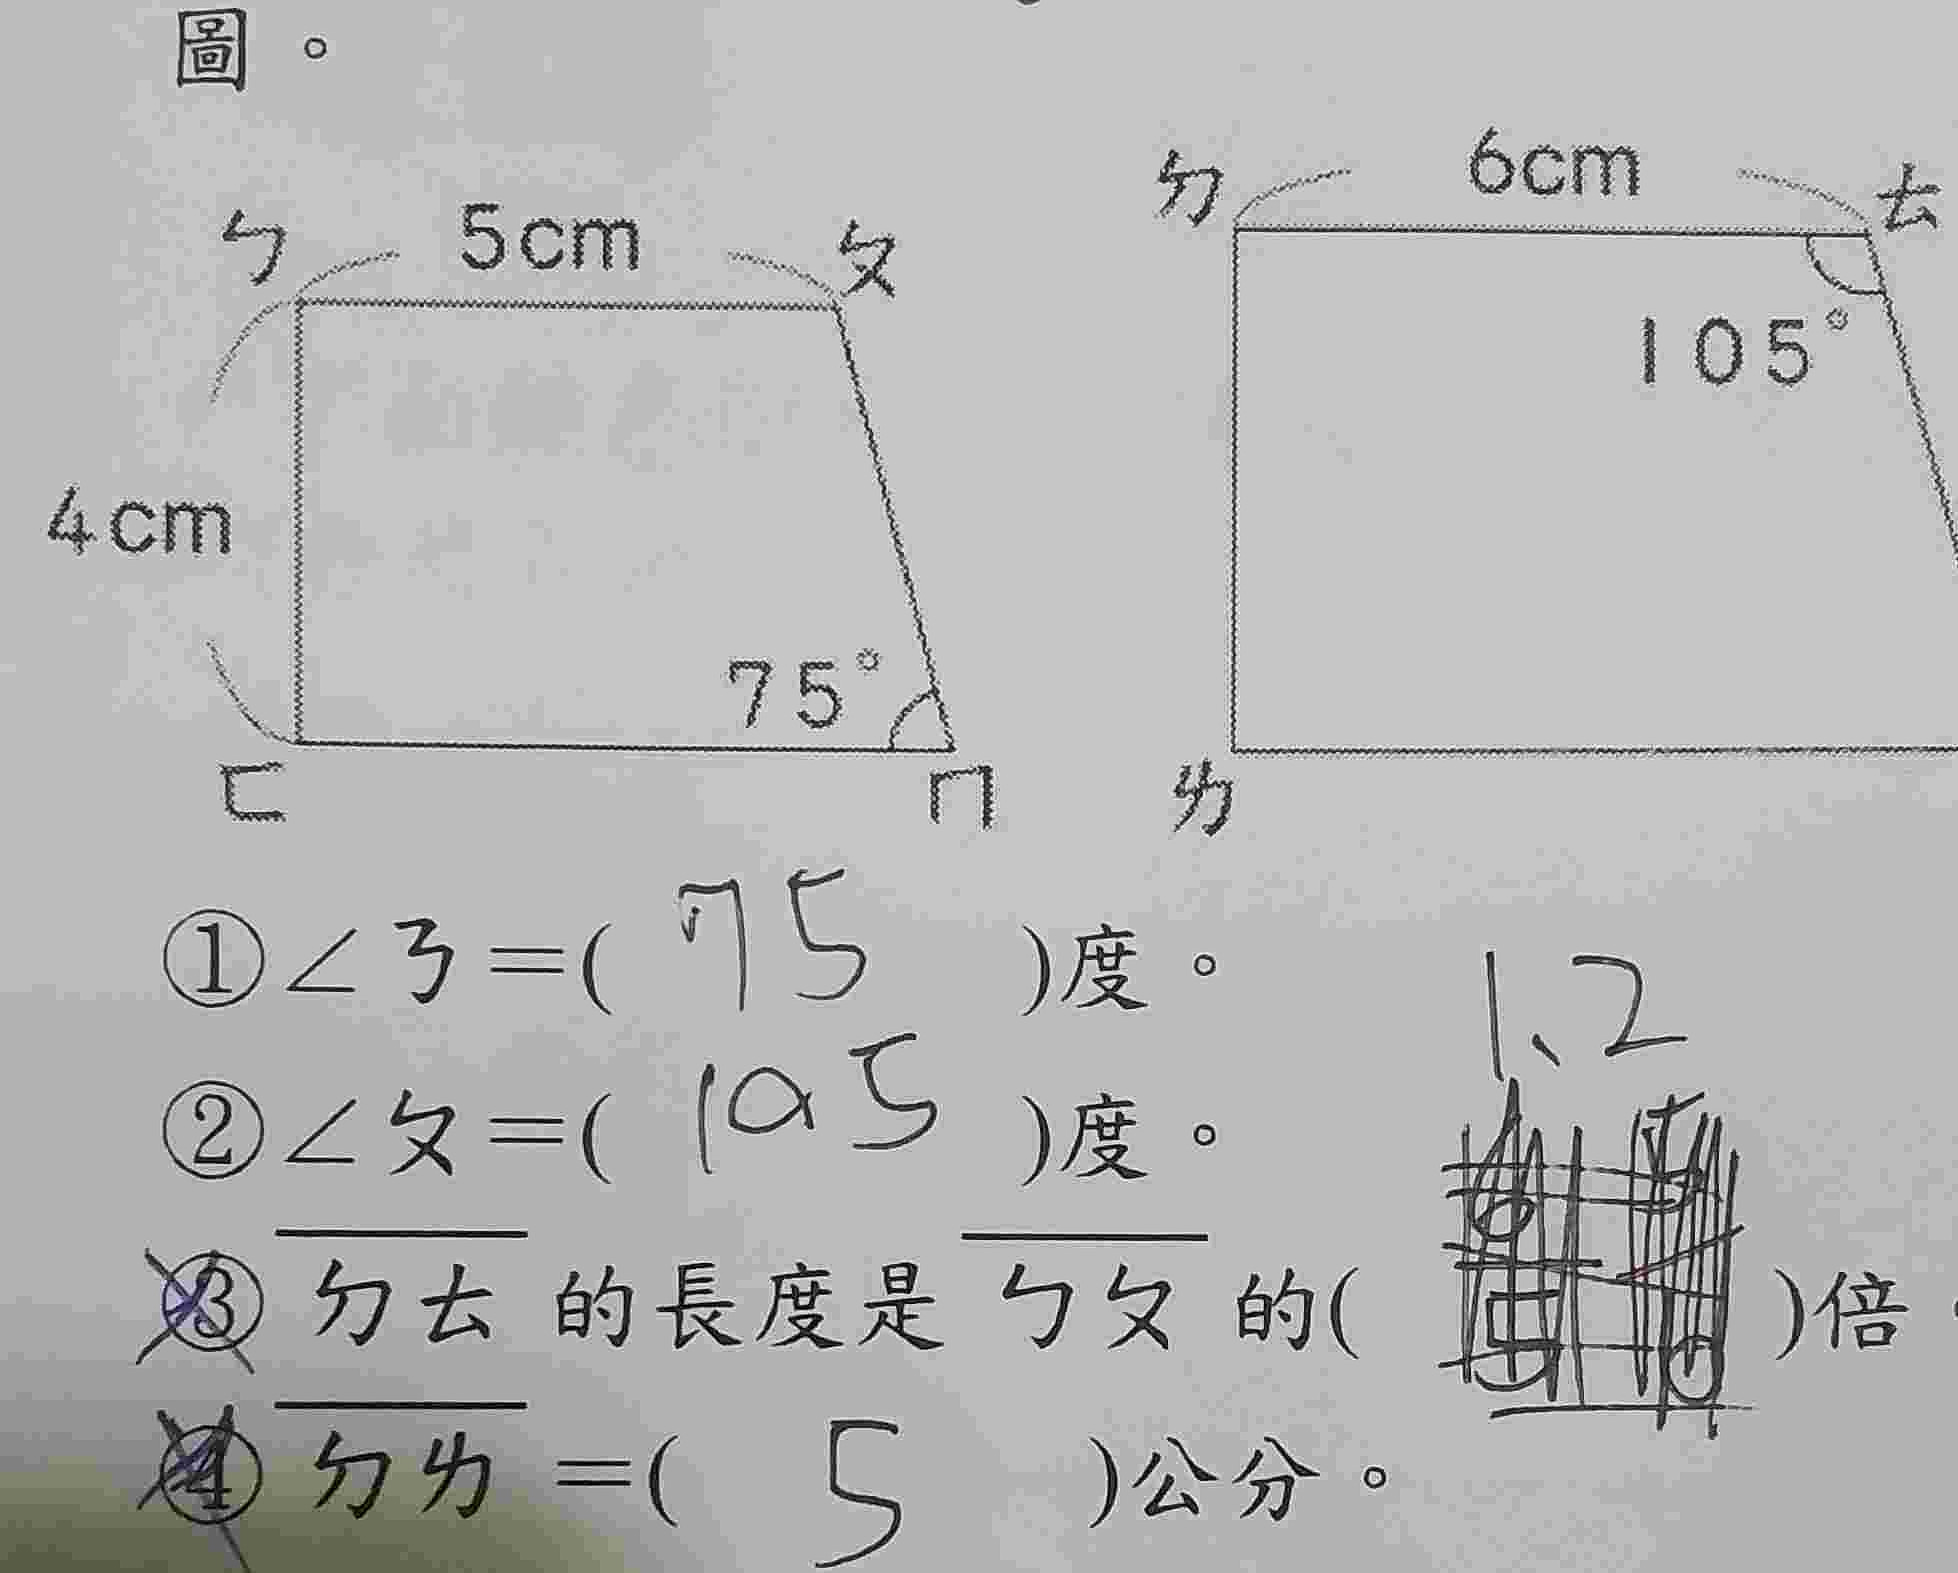 圖。
ㄅ 5cm ㄆ
4cm
75°
ㄈ ㄇ
ㄉ 6cm ㄊ
105°
ㄌ
①∠ㄋ=( 75 )度。
②∠ㄆ=( 105 )度。
1、2
③ㄉㄊ的長度是ㄅㄆ的( )倍
④ㄉㄌ=( 5 )公分。